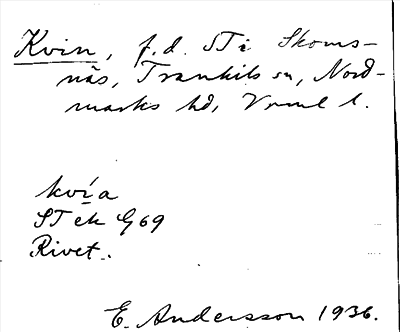 Kvin, f.d. ST i Skoms-
näs, Trankils sn, Nord-
marks hd, Vrml l.
kvía
ST ek G69
Rivet.
E. Andersson 1936.